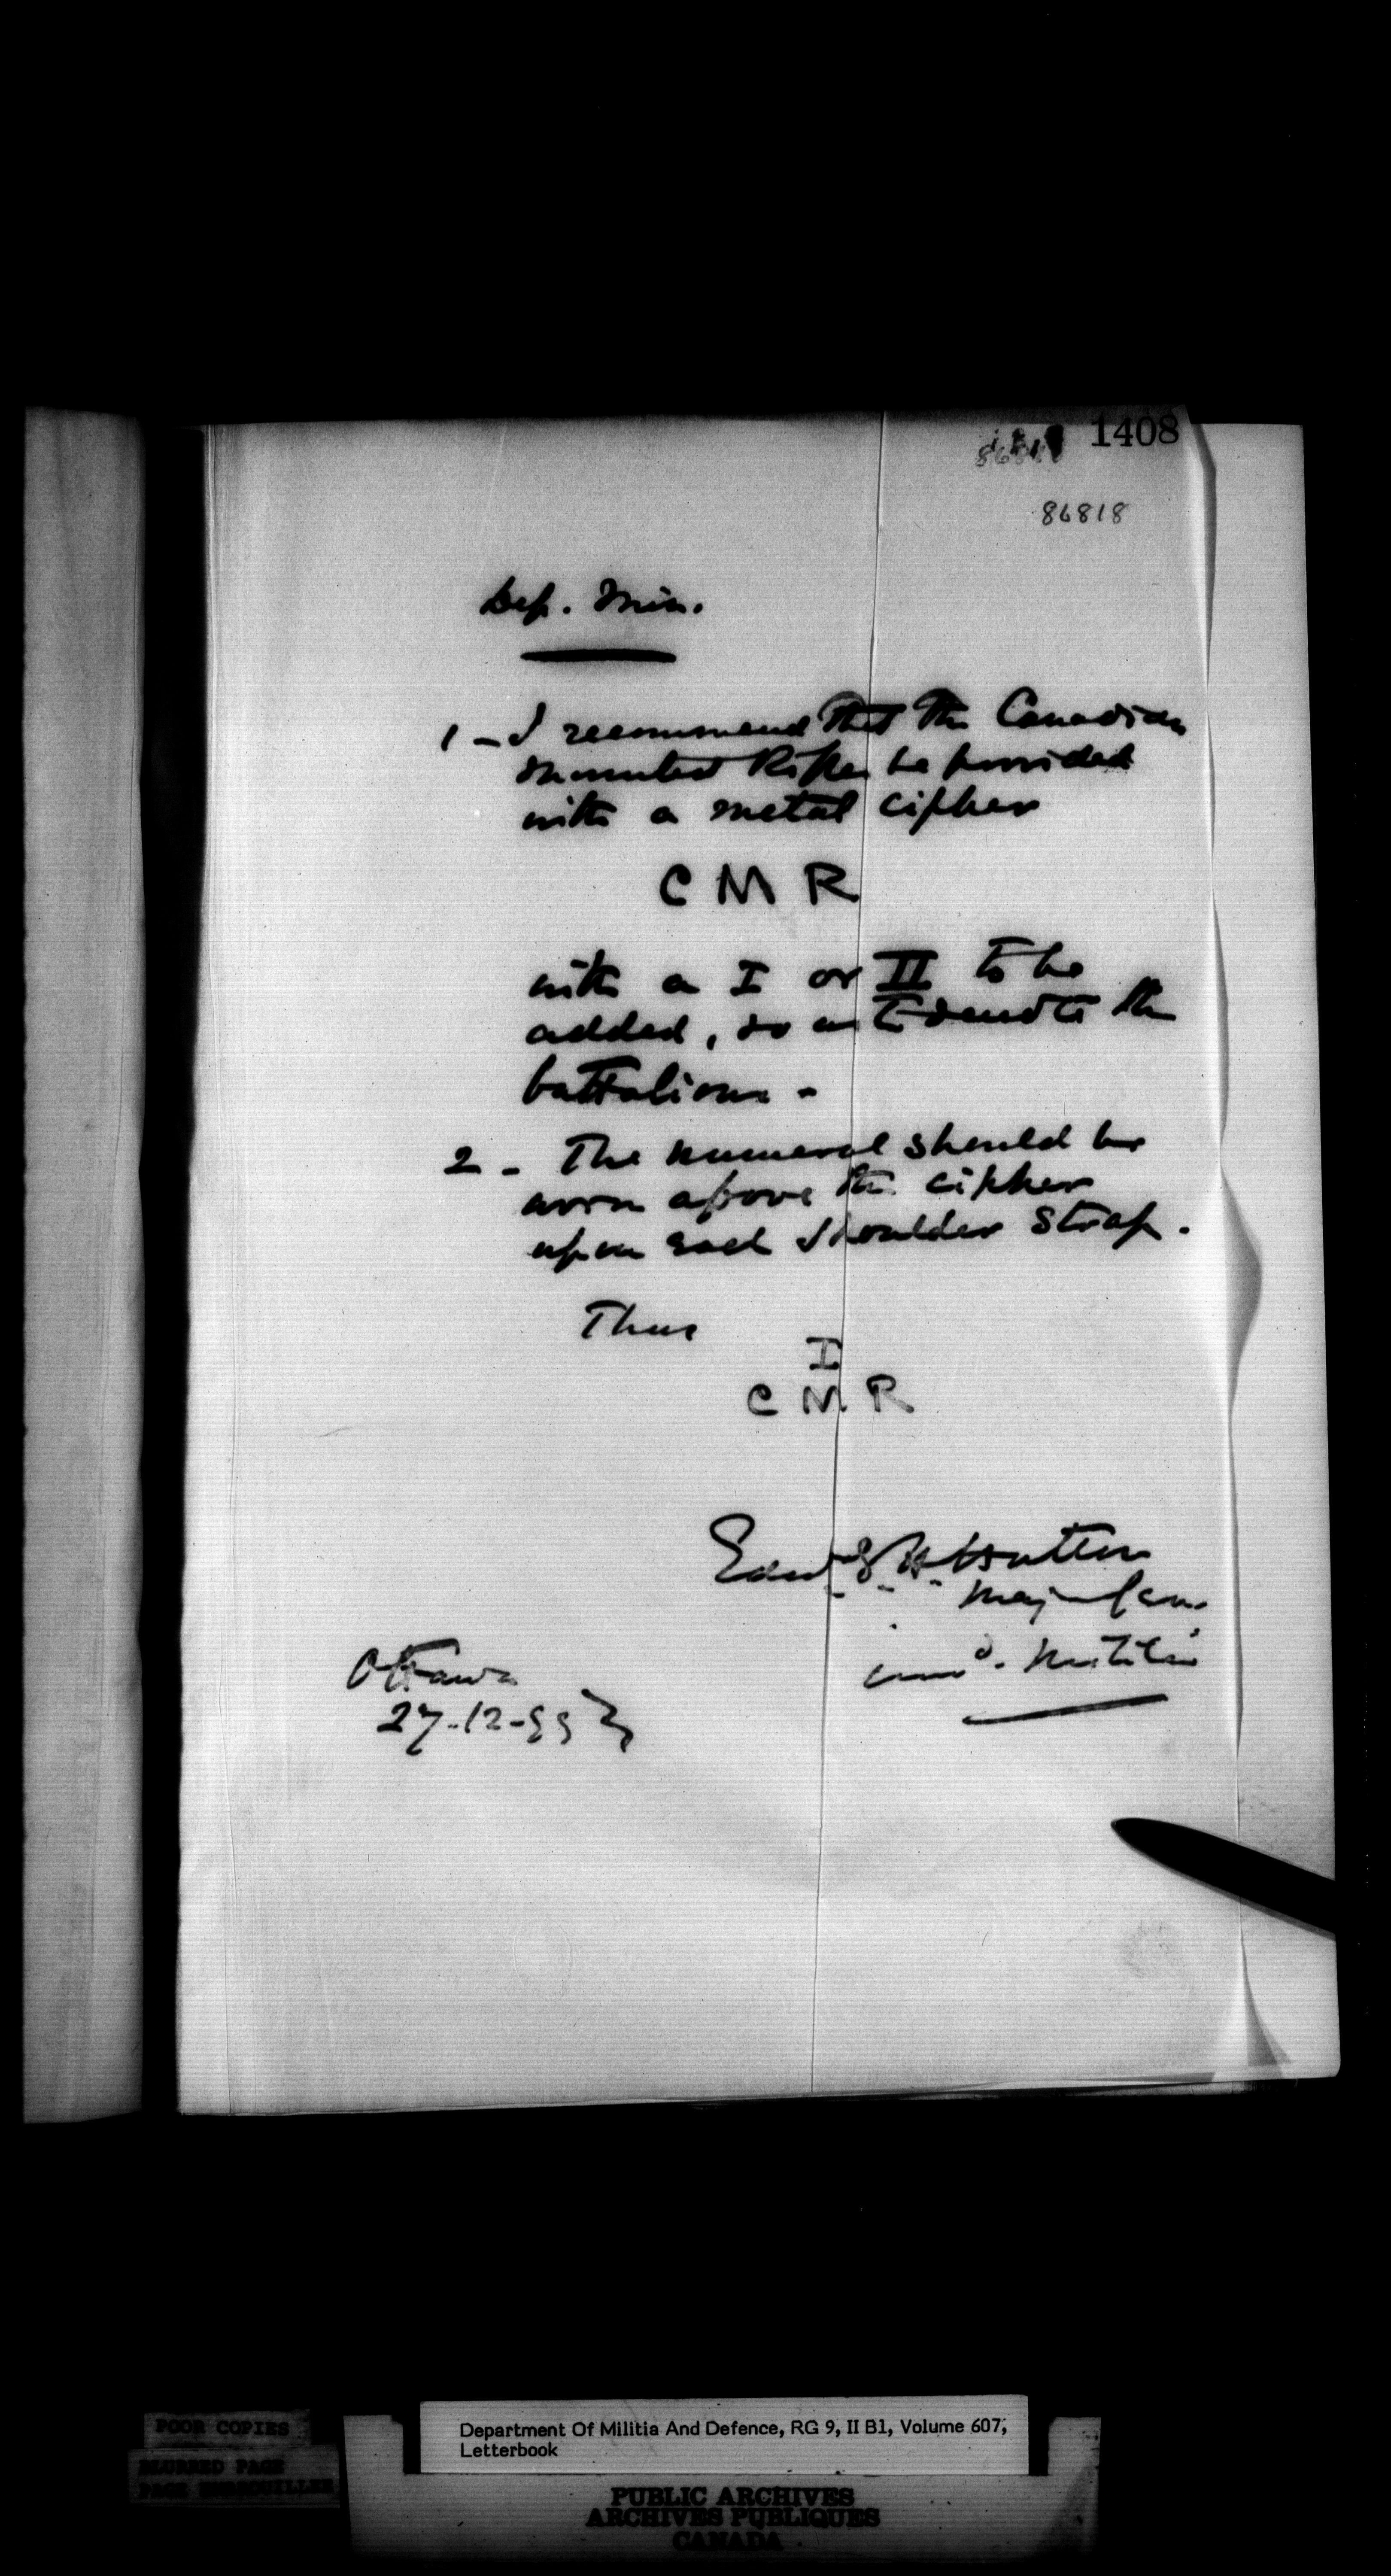 1408
86818
Dep. Min.
1 - I recommend that the Canadian
Mounted Rifles be provided
with a metal cipher
C M R
with a I or II to be
added, so as to denote the
battalion -
2 - The numeral should be
worn above the cipher
upon each shoulder strap.
Thus
I
C M R
Edwd. T. H. Hutton
Maj. Gen.
Comd. Militia
Ottawa
27-12-99
Department Of Militia And Defence, RG 9, II B1, Volume 607,
Letterbook
POOR COPIES
BLURRED PAGE
PAGE
PUBLIC ARCHIVES
ARCHIVES PUBLIQUES
CANADA